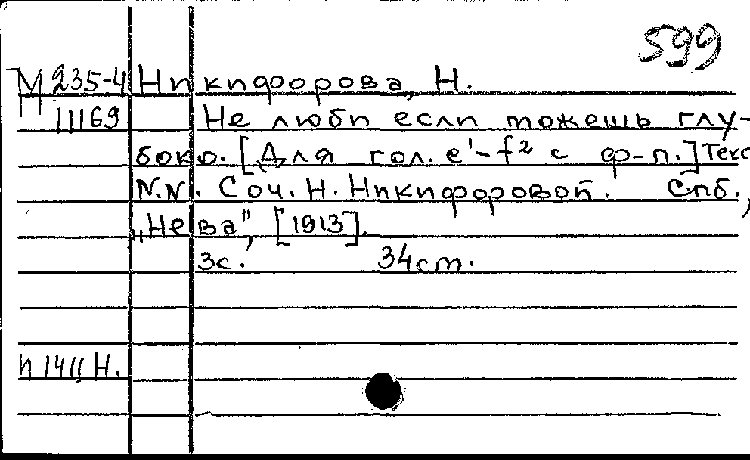 599
М 235-4 Никифорова, Н.
11169 Не люби если можешь глу-
боко. [Для гол. e¹-f² с ф-п.] Текс
N.N. Соч. Н. Никифоровой. Спб.,
„Нева", [1913].
3с. 34см.
п 1411 Н.